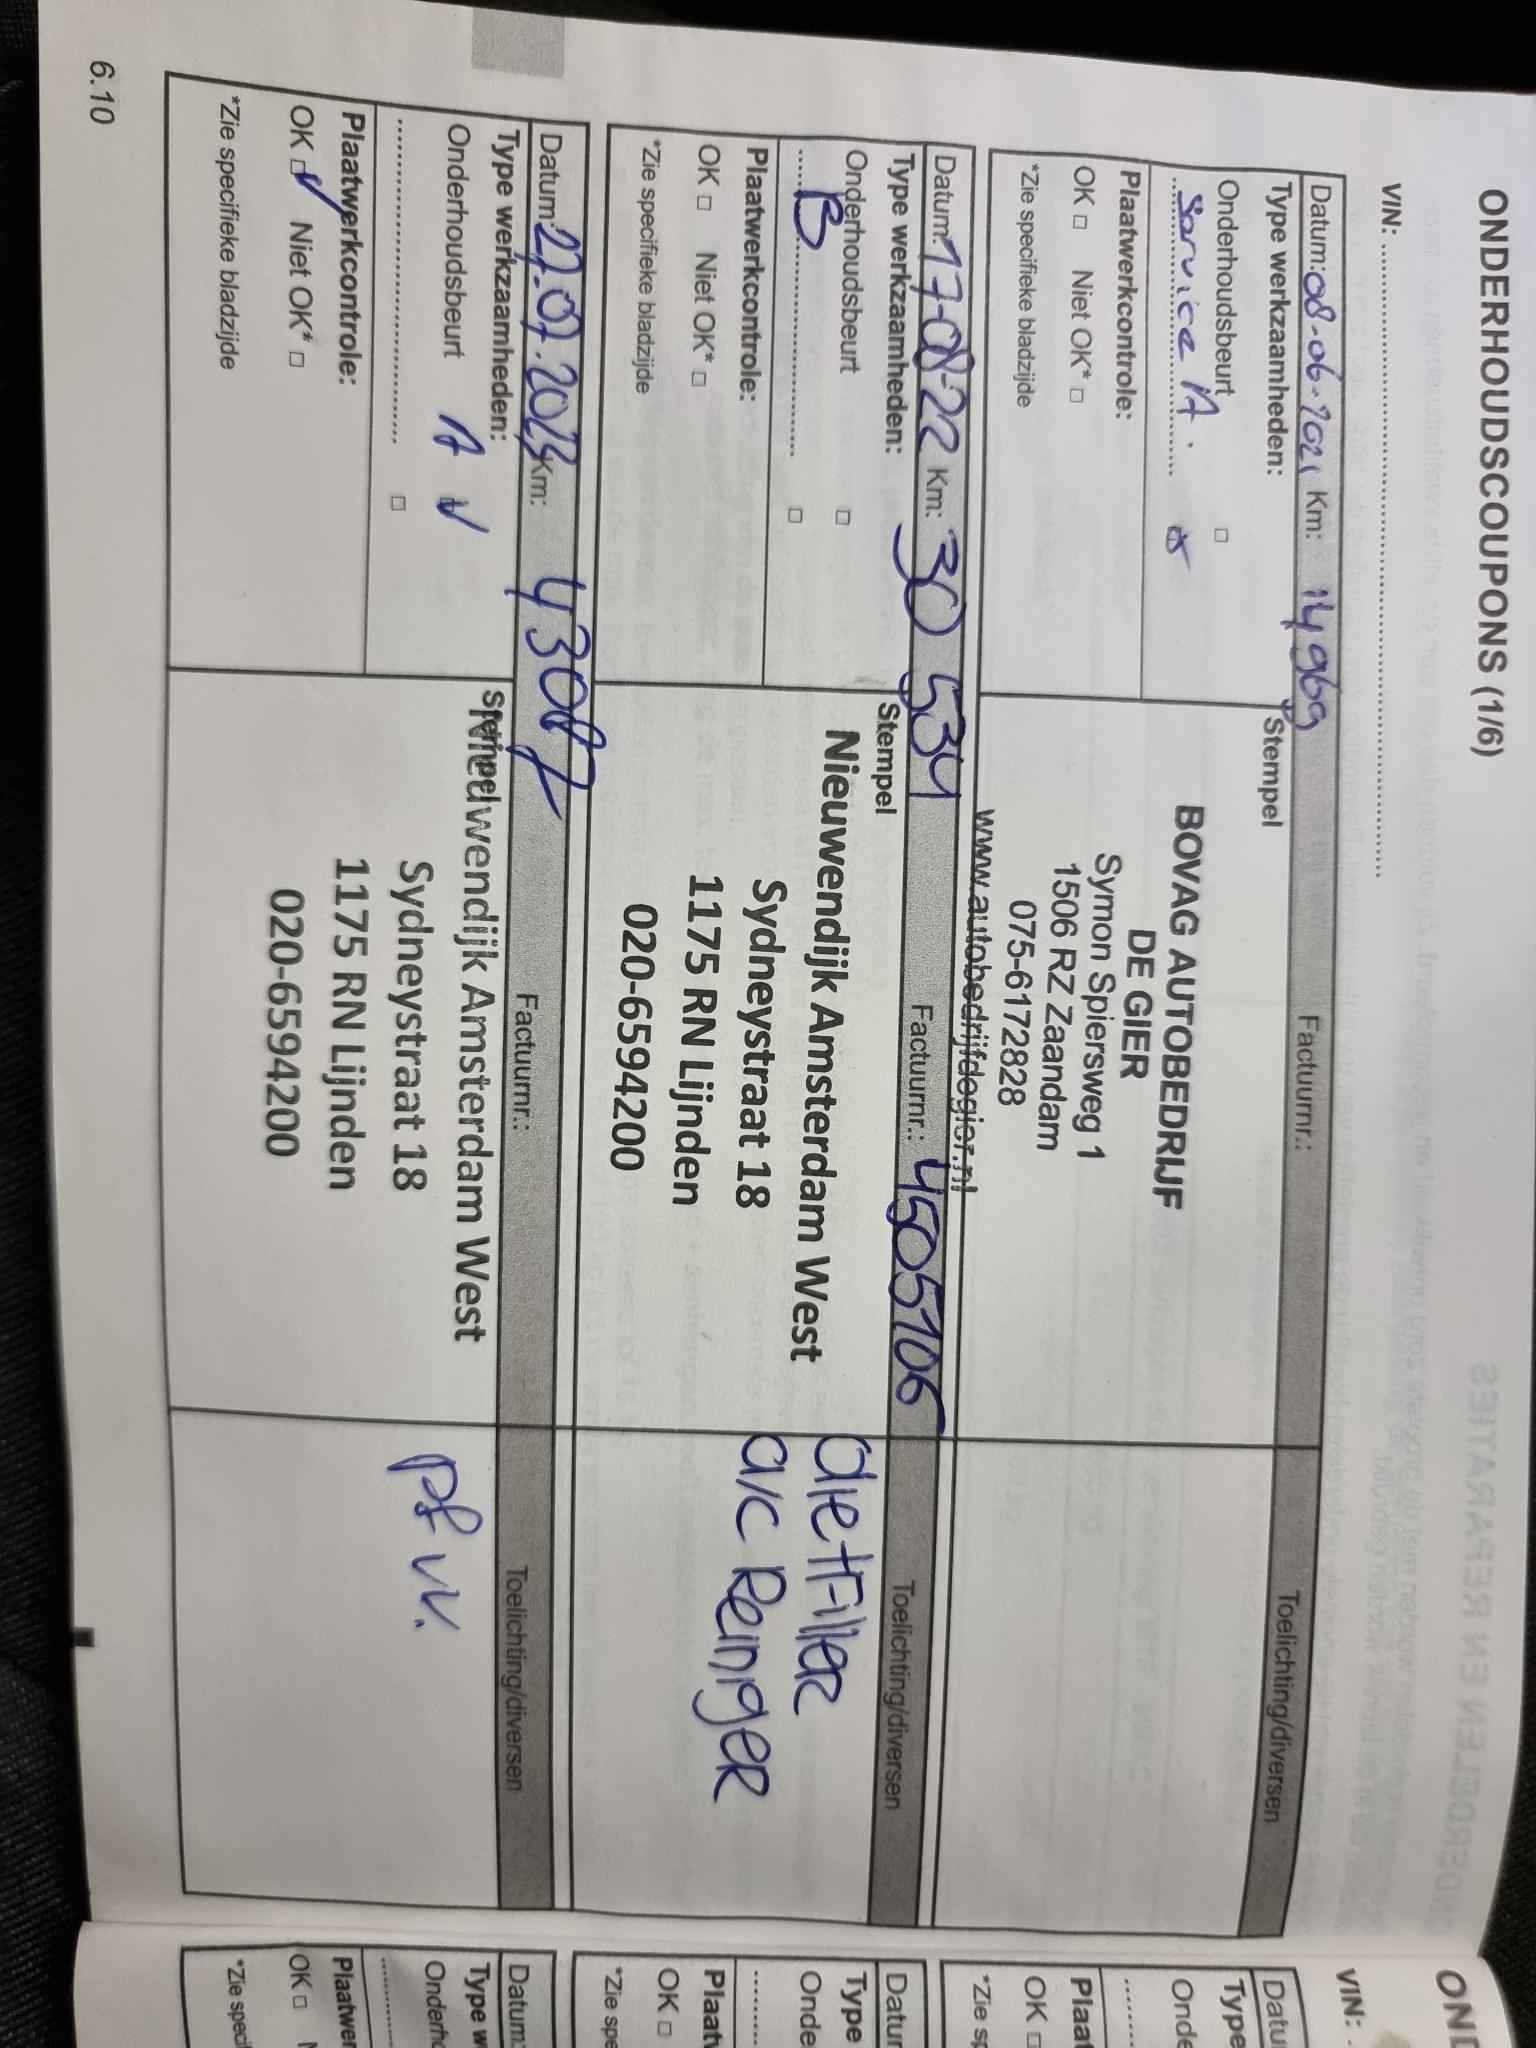 ONDERHOUDSCOUPONS (1/6)
VIN: ........................................
Datum: 08-06-2021 Km: 14969 Factuurnr.: Toelichting/diversen
Type werkzaamheden: Stempel
Onderhoudsbeurt □
Service A.
Plaatwerkcontrole:
OK □ Niet OK* □
*Zie specifieke bladzijde
BOVAG AUTOBEDRIJF
DE GIER
Symon Spiersweg 1
1506 RZ Zaandam
075-6172828
www.autobedrijfdegier.nl
Datum: 17-08-22 Km: 30 534 Factuurnr.: 4505106 Toelichting/diversen
Type werkzaamheden: Stempel
Onderhoudsbeurt □
B □
Plaatwerkcontrole:
OK □ Niet OK* □
*Zie specifieke bladzijde
Nieuwendijk Amsterdam West
Sydneystraat 18
1175 RN Lijnden
020-6594200
a/c Reiniger
Datum: 27.07.2023 Km: Factuurnr.: Toelichting/diversen
Type werkzaamheden: Stempel
Onderhoudsbeurt A √
........................................ □
Plaatwerkcontrole:
OK √ Niet OK* □
*Zie specifieke bladzijde
Nieuwendijk Amsterdam West
Sydneystraat 18
1175 RN Lijnden
020-6594200
6.10
OND
VIN: .
Datu
Type
Onde
Plaat
OK □
*Zie sp
Datur
Type
Onde
Plaatv
OK □
*Zie spe
Datum:
Type w
Onderho
Plaatwer
OK □ N
*Zie specif